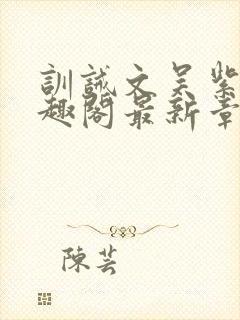 訓誡文吴紫
趣閣最新章
陳芸